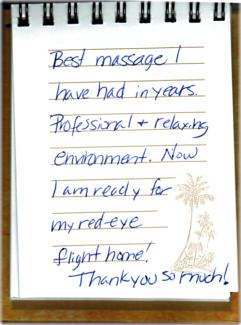 Best massage I
have had in years.
Professional + relaxing
environment. Now
I am ready for
my red-eye
flight home!
Thank you so much!